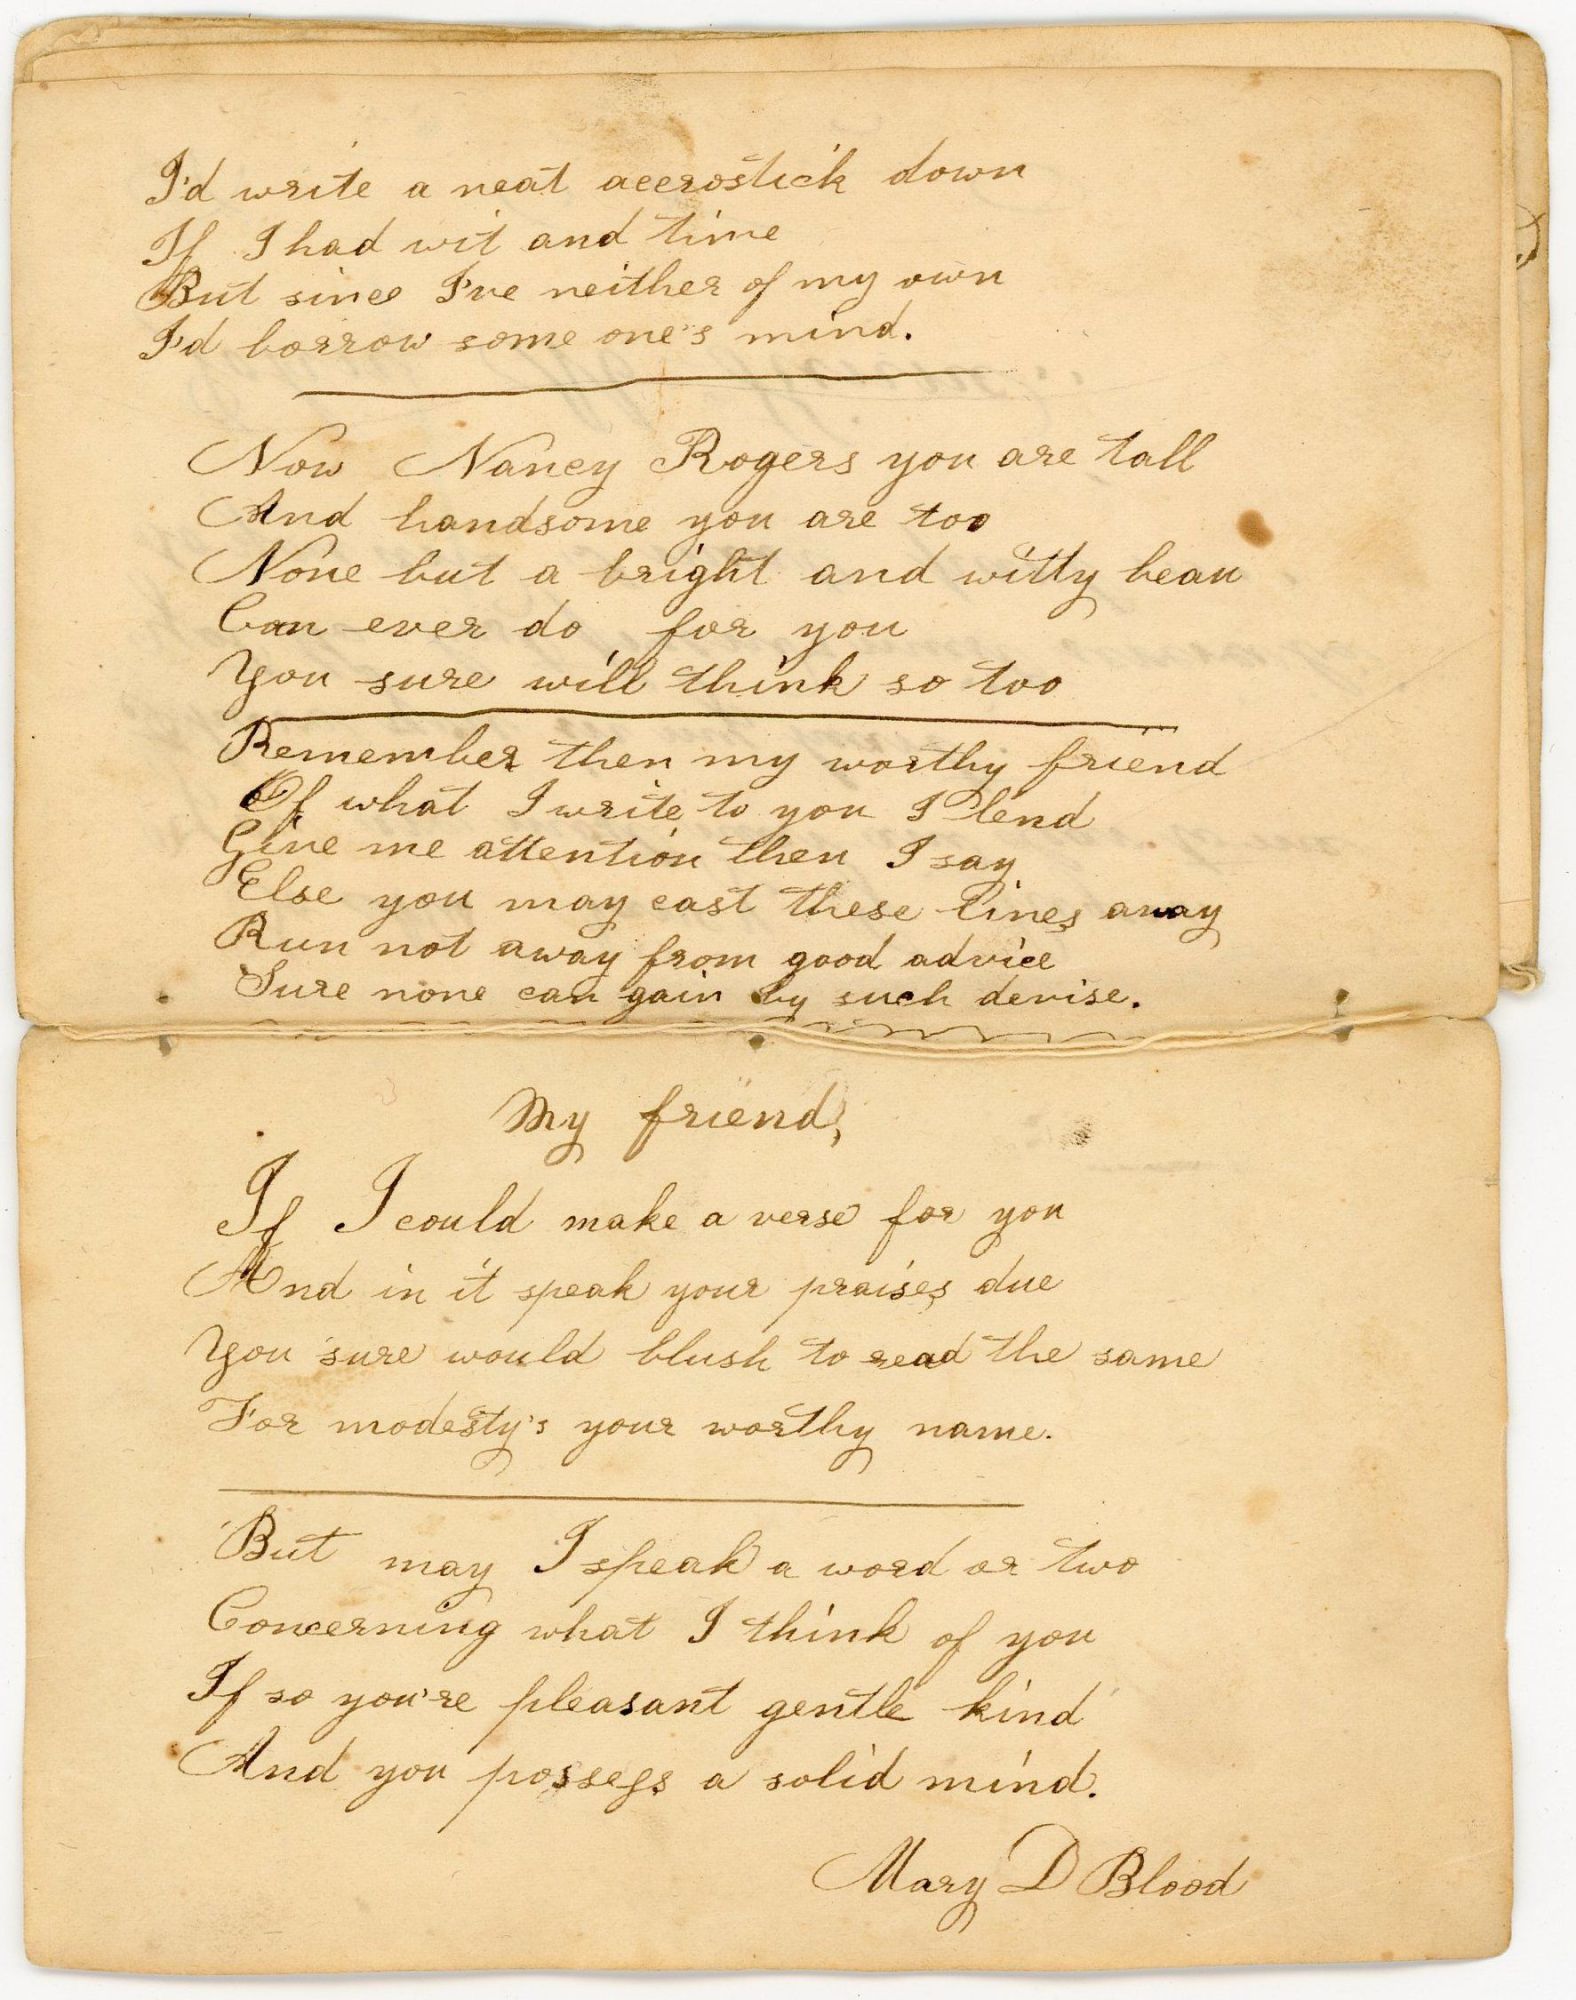 I'd write a neat accrostick down
If I had wit and time
But since I've neither of my own
I'd borrow some one's mind.
Now Nancy Rogers you are tall
And handsome you are too
None but a bright and witty beau
Can ever do for you
You sure will think so too
Remember then my worthy friend
Of what I write to you I lend
Give me attention then I say
Else you may cast these lines away
Run not away from good advice
Sure none can gain by such devise.
My friend,
If I could make a verse for you
And in it speak your praises due
You sure would blush to read the same
For modesty's your worthy name.
But may I speak a word or two
Concerning what I think of you
If so you're pleasant gentle kind
And you possess a solid mind.
Mary D Blood